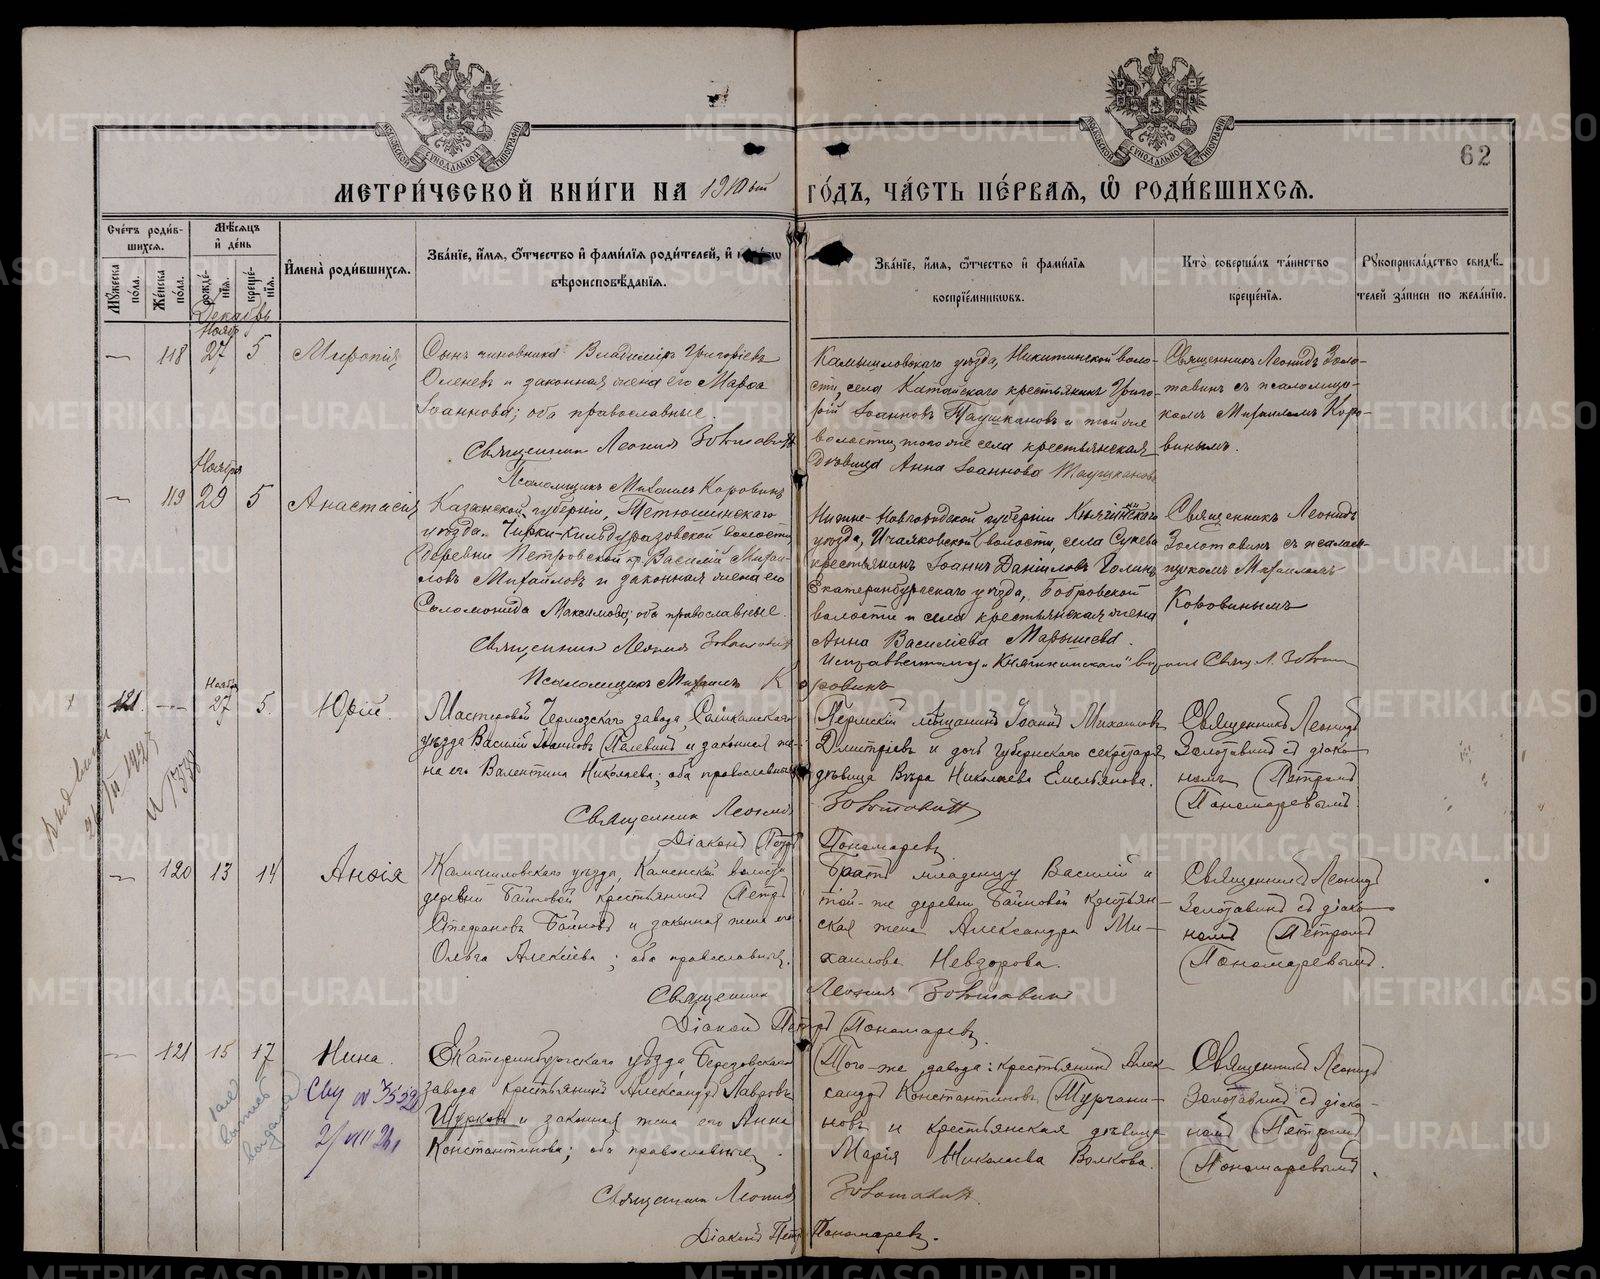 62
МЕТРИ́ЧЕСКОЙ КНИ́ГИ НА 1910 ый ГО́ДЪ, ЧА́СТЬ ПЕ́РВАЯ, Ѡ РОДИ́ВШИХСЯ.
Сче́тъ роди́вшихся.
Му́жеска по́ла.
Же́нска по́ла.
Мѣ́сяцъ и҆ де́нь
рожде́нїя.
креще́нїя.
И҆мена̀ роди́вшихся.
Зва́нїе, и҆́мя, ѻ҆́тчество и҆ фами́лїя роди́телей, и҆
вѣроисповѣ́данїя.
Зва́нїе, и҆́мя, ѻ҆́тчество и҆ фами́лїя
воспрїе́мниковъ.
Кто̀ соверша́лъ та́инство
креще́нїя.
Рꙋкоприкла́дство свидѣ́-
телей за́писи по жела́нїю.
Декабрь
Ноябрь
— 118 27 5
Миропія
Сынъ чиновника Владиміръ Григоріевъ
Оленевъ и законная жена его Марѳа
Іоаннова; оба православные.
Священникъ Леонидъ Золотавинъ
Псаломщикъ Михаилъ Коровинъ
Камышловскаго уѣзда, Никитинской воло-
сти, села Катайскаго крестьянинъ Григо-
рій Іоанновъ Таушкановъ и той же
волости, того же села крестьянская
дѣвица Анна Іоаннова Таушканова
Священникъ Леонидъ Золо-
тавинъ съ псаломщи-
комъ Михаиломъ Коро-
винымъ.
Ноябрь
— 119 29 5
Анастасія
Казанской губерніи, Тетюшинскаго
уѣзда, Чирки-Кильдуразовской волости,
деревни Петровской кр. Василій Михаи-
ловъ Михайловъ и законная жена его
Соломонида Максимова; оба православные.
Священникъ Леонидъ Золотавинъ
Псаломщикъ Михаилъ Коровинъ
Нижне-Новгородской губерніи Княгининскаго
уѣзда, Ичалковской волости, села Сукева
крестьянинъ Іоаннъ Даніиловъ Голинъ
Екатеринбургскаго уѣзда, Бобровской
волости и села крестьянская жена
Анна Василіева Марышева.
Исправленному „Княгининскаго" вѣрить Свящ. Л. Золотавинъ
Священникъ Леонидъ
Золотавинъ съ псалом-
щикомъ Михаиломъ
Коровинымъ
Ноябрь
121. — 27 5.
Юрій.
Мастеровой Чермозскаго завода, Соликамскаго
уѣзда Василій Іоанновъ Палевинъ и законная же-
на его Валентина Николаева; оба православные
Священникъ Леонидъ Золотавинъ
Діаконъ Петръ Пономаревъ
Пермскій мѣщанинъ Іоаннъ Михаиловъ
Дмитріевъ и дочь губернскаго секретаря
дѣвица Вѣра Николаева Емельянова.
Священникъ Леонидъ
Золотавинъ съ діако-
номъ Петромъ
Пономаревымъ.
— 120 13 14
Анѳія
Камышловскаго уѣзда, Каменской волости
деревни Байновой крестьянинъ Петръ
Стефановъ Байновъ и законная жена его
Ольга Алексіева; оба православные.
Священникъ Леонидъ Золотавинъ
Діаконъ Петръ Пономаревъ.
Братъ младенцу Василій и
той-же деревни Байновой крестьян-
ская жена Александра Ми-
хаилова Невзорова.
Священникъ Леонидъ
Золотавинъ съ діако-
номъ Петромъ
Пономаревымъ.
— 121 15 17
Нина.
2/VIII 24
Екатеринбургскаго уѣзда, Березовскаго
завода крестьянинъ Александръ Лавровъ
Шурковъ и законная жена его Анна
Константинова; оба православные.
Священникъ Леонидъ Золотавинъ
Діаконъ Петръ Пономаревъ.
Того-же завода: крестьянинъ Алек-
сандръ Константиновъ Турчани-
новъ и крестьянская дѣвица
Марія Николаева Волкова.
Священникъ Леонидъ
Золотавинъ съ діако-
номъ Петромъ
Пономаревымъ.
METRIKI.GASO-URAL.RU